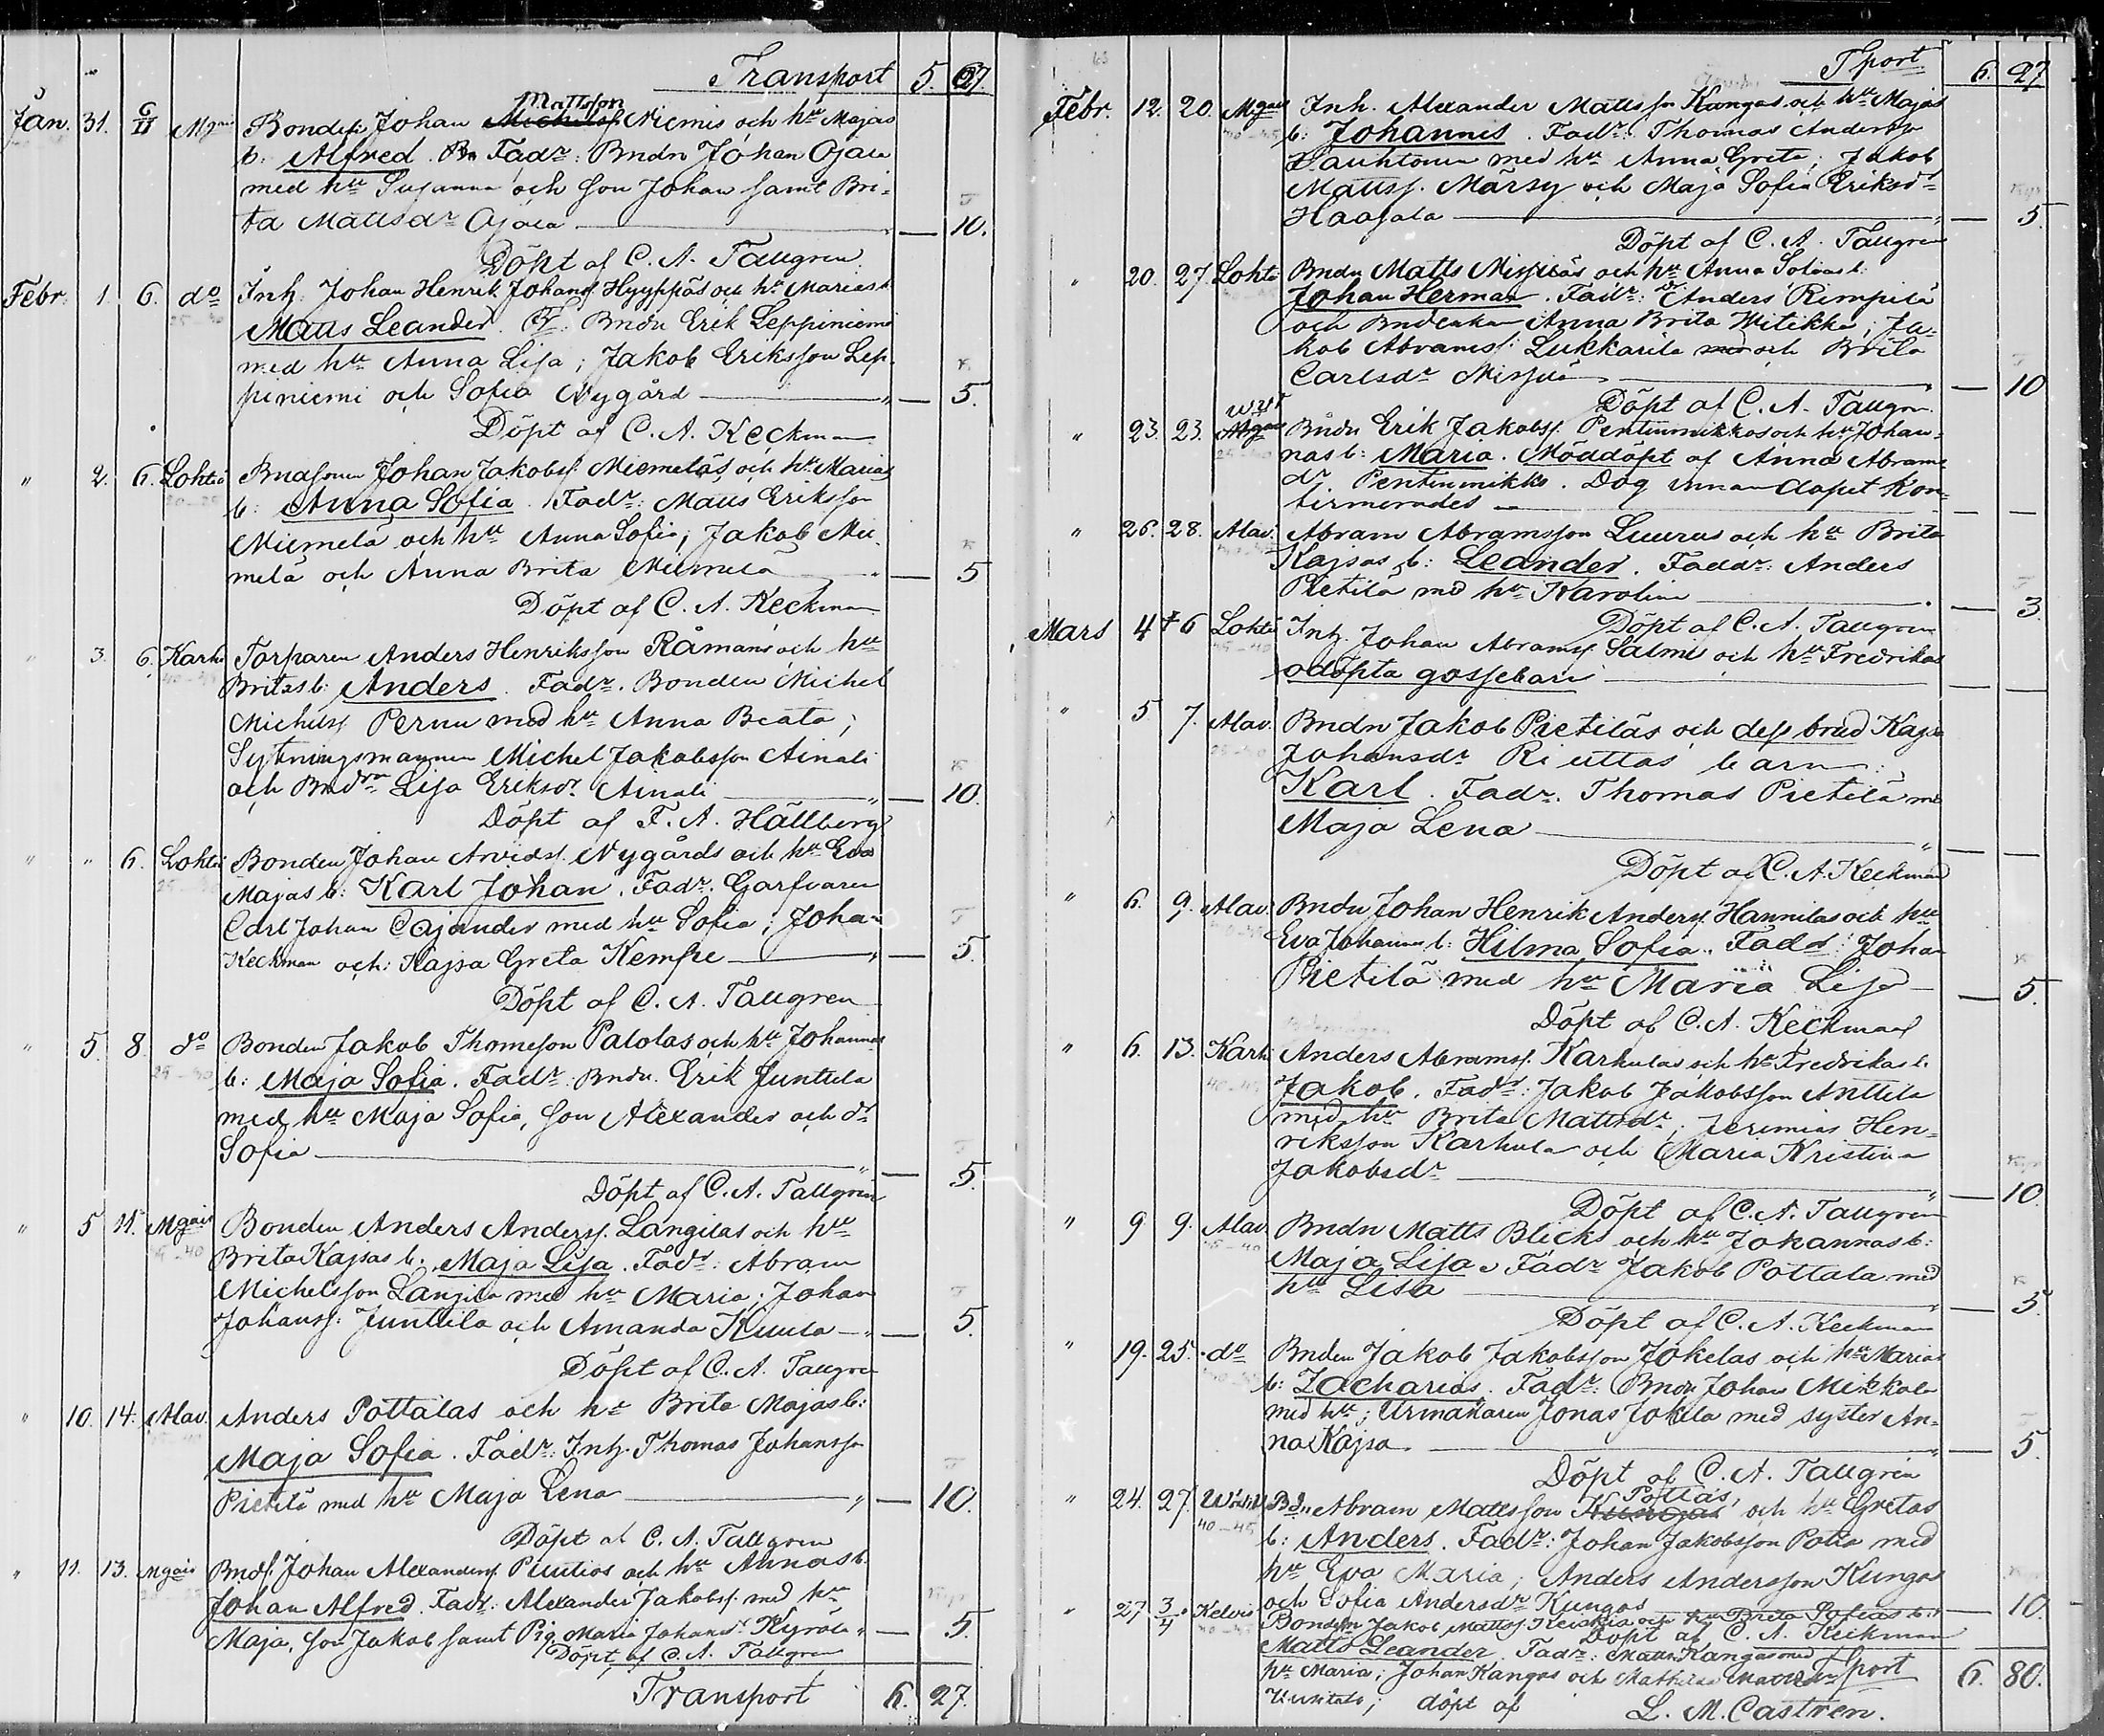 Transport 5. 67.
Mattsson
Jan. 31. 6/II Mgais Bondes. Johan Michelss. Niemis och hu Majas
b: Alfred. Fadr: Bndn Johan Ojala
med hu Susanna och son Johan samt Bri-
ta Mattsdr Ojala — 10.
Döpt af C. A. Tallgren
Febr. 1. 6. do Inh. Johan Henrik Johanss. Hyyppäs och hu Marias b.
Matts Leander. Bndn Erik Leppiniemi
med hu Anna Lisa; Jakob Eriksson Lep-
piniemi och Sofia Nygård " — 5.
Döpt af C. A. Keckman
" 2. 6. Lohteå Bndsonen Johan Jakobss. Niemeläs och hu Marias
b: Anna Sofia. Fadr: Matts Eriksson
Niemelä och hu Anna Sofia; Jakob Nie-
melä och Anna Brita Niemelä " — 5
Döpt af C. A. Keckman
" 3. 6. Karh. Torparen Anders Henriksson Råmans och hu
Britas b: Anders. Fadr. Bonden Michel
Michelss. Pernu med hu Anna Beata;
Sytningsmannen Michel Jakobsson Ainali
och Bnddrn Lisa Eriksdr Ainali " — 10.
Döpt af F. A. Hällberg
" " 6. Lohteå Bonden Johan Arvidss. Nygårds och hu Eva
Majas b: Karl Johan. Fadr. Garfvaren
Carl Johan Cajander med hu Sofia; Johan
Keckman och Kajsa Greta Kempe " — 5.
Döpt af C. A. Tallgren
" 5. 8. do Bonden Jakob Thomsson Palolas och hu Johannas
25-40 b: Maja Sofia. Fadr: Bndn. Erik Junttila
med hu Maja Sofia, son Alexander och dr
Sofia " — 5.
Döpt af C. A. Tallgren
" 5 15. Mgais Bonden Anders Anderss. Långilas och hu
Brita Kajsas b. Maja Lisa. Fadr: Abram
Michelsson Långila med hu Maria; Johan
Johanss. Junttila och Amanda Kuula " — 5.
Döpt af C. A. Tallgren
" 10. 14. Alav. Anders Pottalas och hu Brita Majas b:
Maja Sofia. Fadr: Inh. Thomas Johansson
Pietilä med hu Maja Lena " — 10.
Döpt af C. A. Tallgren
" 11. 13. Mgais Bnds. Johan Alexanderss. Puutios och hu Annas b.
Johan Alfred. Fadr: Alexander Jakobss. med hu
Maja, son Jakob samt Pig. Maria Johansdr Kyrölä " — 5.
Döpt af C. A. Tallgren
Transport 6. 27.
Tport 6. 27
Febr. 12. 20. Mgais Inh. Alexander Mattsson Kangas och hu Majas
b: Johannes. Fadr: Thomas Andersson
med hu Anna Greta; Jakob
Mattss. Märsy och Maja Sofia Eriksdr
Haapala " — 5.
Döpt af C. A. Tallgren
" 20. 27. Lohteå Bndn Matts Nissiläs och hu Anna Sofias b:
Johan Herman. Fadr: Anders Rimpilä
och Bndenkan Anna Brita Witikka; Ja-
kob Abramss. Lukkarila och Brita
Carlsdr Nissilä " — 10
Döpt af C. A. Tallgren.
" 23. 23. Mgais Bndn Erik Jakobss. Pentinmikkos och hu Johan-
nas b: Maria. Nöddöpt af Anna Abrams-
dr. Pentinmikko. Dog innan dopet kon-
firmerades — —
" 26. 28. Alav. Abram Abramsson Luuras och hu Brita
Kajsas b: Leander. Faddr: Anders
Pietilä med hu Karolina " — 3.
Döpt af C. A. Tallgren
Mars 4 † 6 Lohteå Inh. Johan Abramss. Salmis och hu Fredrikas
odöpta gossebarn — —
" 5. 7. Alav. Bndn Jakob Pietiläs och dess brud Kajsa
Johansdr Riuttas barn:
Karl. Fadr. Thomas Pietilä med
Maja Lena " — —
Döpt af C. A. Keckman
" 6. 9. Alav. Bndn Johan Henrik Anderss. Hannilas och hu
Eva Johannas b: Hilma Sofia. Fadr: Johan
Pietilä med hu Maria Lisa — 5.
Döpt af C. A. Keckman
" 6. 13. Karh. Anders Abramss. Karhulas och hu Fredrikas b.
Jakob. Fadr: Jakob Jakobsson Anttila
med hu Brita Mattsdr; Jeremias Hen-
riksson Karhula och Maria Kristina
Jakobsdr " — 10.
Döpt af C. A. Tallgren
" 9 9. Alav. Bndn Matts Blicks och hu Johannas b:
Maja Lisa. Fadr Jakob Pottala med
hu Lisa " — 5.
Döpt af C. A. Keckman
" 19. 25. do Bnden Jakob Jakobsson Jokelas och hu Marias
b: Zacharias. Fadr: Bndn Johan Mikkola
med hu; Urmakaren Jonas Jokela med syster An-
na Kajsa. " — 5.
Döpt af C. A. Tallgren
Pottas,
" 24. 27. Bdn Abram Mattsson Kungas och hu Gretas
40-45 b: Anders. Fadr: Johan Jakobsson Potta med
hu Eva Maria; Anders Andersson Kungas
och Sofia Andersdr Kungas — 10.
Döpt af C. A. Keckman
" 27 3/4 Kelviå Bonden Jakob Mattss. och hu Brita Sofias b:
Matts Leander. Fadr: Matts Kangas med
hu Maria; Johan Kangas och
döpt af L. M. Castrén.
Tport 6. 80.